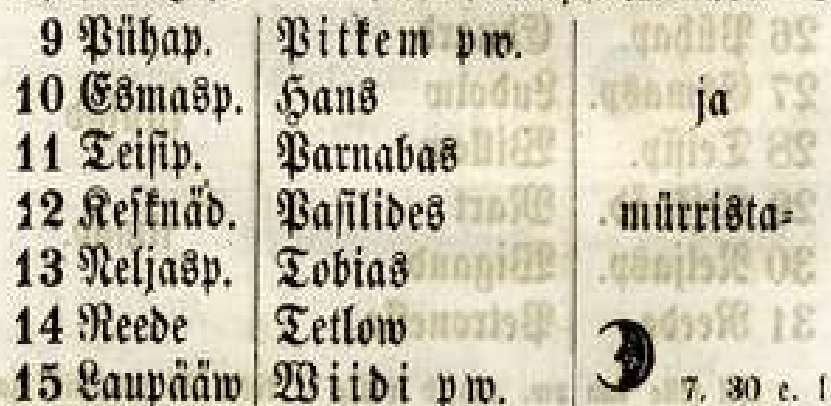 9 Pühap. Pitkem pw.
10 Esmasp. Hans ja
11 Teisip. Parnabas
12 Keſknäd. Paſilides mürrista⸗
13 Neljasp. Tobias
14 Reede Tetlow
15 Laupääw Wiidi pw. 7, 30 e. l